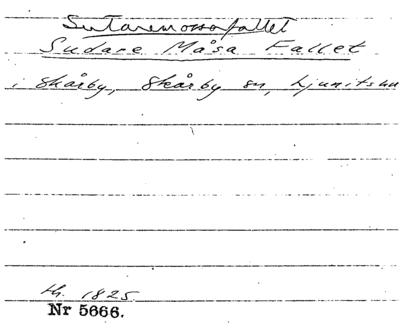 Sutaremossafallet
Sudare Måsa Fallet
i Skårby, Skårby sn, Ljunitshd
th. 1825.
Nr 5666.